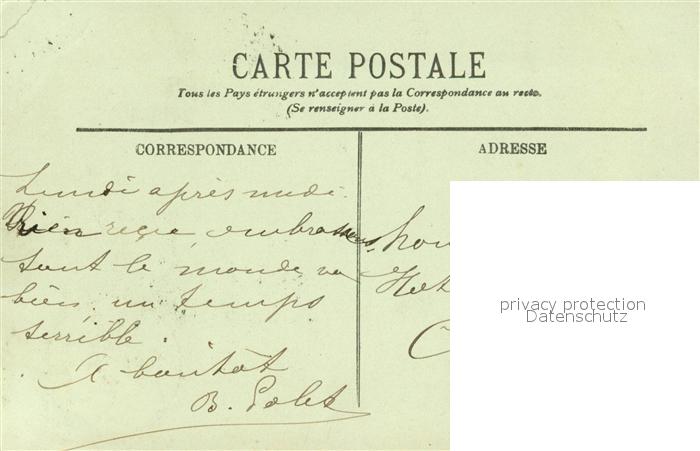 CARTE POSTALE
Tous les Pays étrangers n'acceptent pas la Correspondance au recto.
(Se renseigner à la Poste).
CORRESPONDANCE
ADRESSE
Lundi après midi.
Rien reçu
tout le monde va
bien un temps
terrible.
A bientôt
B.
privacy protection
Datenschutz